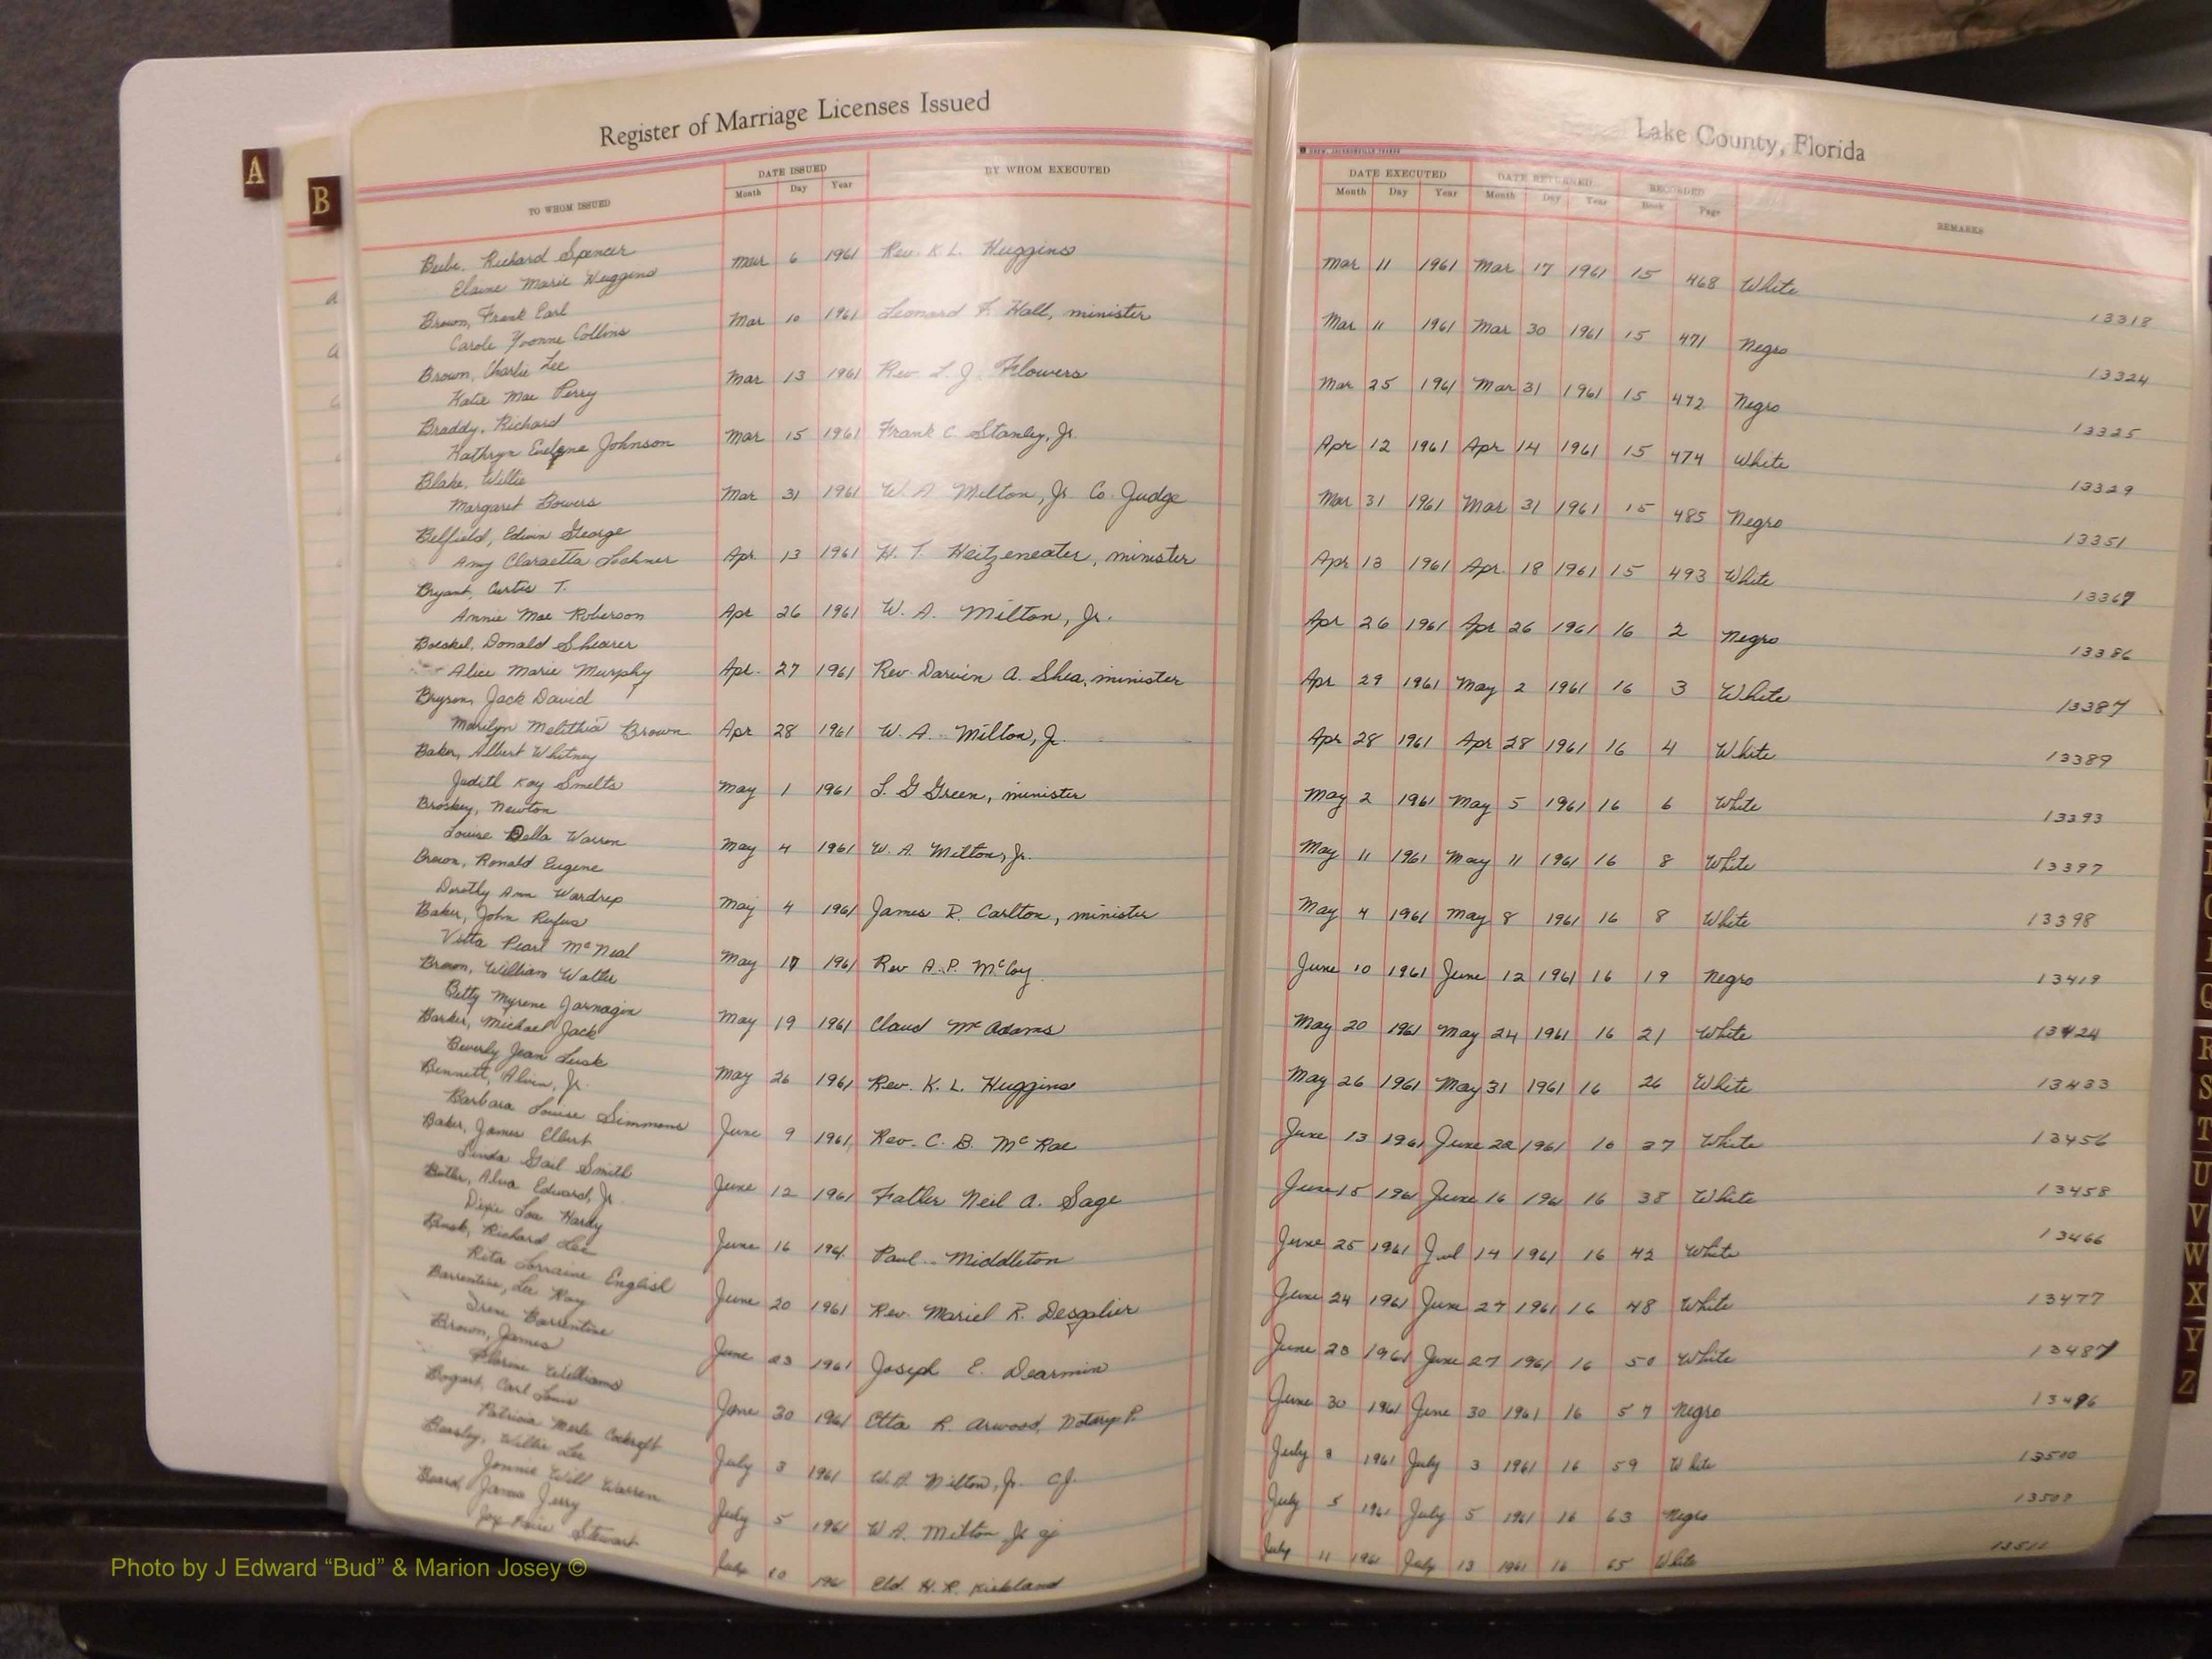 Register of Marriage Licenses Issued
Lake County, Florida
A
B
TO WHOM ISSUED
DATE ISSUED
Month Day Year
BY WHOM EXECUTED
DATE EXECUTED
Month Day Year
DATE RETURNED
Month Day Year
RECORDED
Book Page
REMARKS
Beebe, Richard Spencer
Elaine Marie Huggins
Mar 6 1961 Rev. K. L. Huggins Mar 11 1961 Mar 17 1961 15 468 White 13318
Brown, Frank Earl
Carole Yvonne Collins
Mar 10 1961 Leonard F. Hall, minister Mar 11 1961 Mar 30 1961 15 471 Negro 13324
Brown, Charlie Lee
Katie Mae Perry
Mar 13 1961 Rev. L. J. Flowers Mar 25 1961 Mar 31 1961 15 472 Negro 13325
Braddy, Richard
Kathryn Johnson
Mar 15 1961 Frank C. Stanley, Jr. Apr 12 1961 Apr 14 1961 15 474 White 13329
Blake, Willie
Margaret Bowers
Mar 31 1961 W. A. Milton, Jr. Co. Judge Mar 31 1961 Mar 31 1961 15 485 Negro 13351
Belfield, Edwin George
Amy Claraetta Lochner
Apr 13 1961 H. T. minister Apr 13 1961 Apr. 18 1961 15 493 White 13367
Bryant, Curtis T.
Annie Mae Roberson
Apr 26 1961 W. A. Milton, Jr. Apr 26 1961 Apr 26 1961 16 2 Negro 13386
Boeskel, Donald Shearer
Alice Marie Murphy
Apr. 27 1961 Rev. Darwin A. Shea, minister Apr 29 1961 May 2 1961 16 3 White 13387
Bryson, Jack David
Marilyn Melithia Brown
Apr 28 1961 W. A. Milton, Jr. Apr 28 1961 Apr 28 1961 16 4 White 13389
Baker, Albert Whitney
Judith Kay Smelts
May 1 1961 L. G Green, minister May 2 1961 May 5 1961 16 6 White 13393
Broskey, Newton
Louise Della Warren
May 4 1961 W. A. Milton, Jr. May 11 1961 May 11 1961 16 8 White 13397
Brown, Ronald Eugene
Dorothy Ann Wardrep
May 4 1961 James R. Carlton, minister May 4 1961 May 8 1961 16 8 White 13398
Baker, John Rufus
Vetta Pearl McNeal
May 17 1961 Rev A. P. McCoy June 10 1961 June 12 1961 16 19 Negro 13419
Brown, William Walter
Betty Myrene Jarnagin
May 19 1961 Claud McAdams May 20 1961 May 24 1961 16 21 White 13424
Barker, Michael Jack
Beverly Jean Lusk
May 26 1961 Rev. K. L. Huggins May 26 1961 May 31 1961 16 26 White 13433
Bennett, Alvin, Jr.
Barbara Louise Simmons
June 9 1961 Rev. C. B. McRae June 13 1961 June 1961 16 37 White 13456
Baker, James Elbert
Linda Gail Smith
June 12 1961 Father Neil A. Sage June 15 1961 June 16 1961 16 38 White 13458
Butler, Alva Edward, Jr.
Dixie Lou Hardy
June 16 1961 Paul Middleton June 25 1961 Jul 14 1961 16 42 White 13466
Richard Lee
Rita Lorraine English
June 20 1961 Rev. Mariel R. June 24 1961 June 27 1961 16 48 White 13477
Barrentine, Lee Roy
Irene Barrentine
June 23 1961 Joseph E. Dearmin June 23 1961 June 27 1961 16 50 White 13487
Brown, James
Williams
June 30 1961 Etta R. Arwood, Notary P. June 30 1961 June 30 1961 16 57 Negro 13496
Bogart, Carl Louis
Patricia Merle Cockroft
July 3 1961 W. A. Milton, Jr. CJ. July 3 1961 July 3 1961 16 59 White 13500
Beasley, Willie Lee
Jonnie Will Warren
July 5 1961 W. A. Milton Jr cj July 5 1961 July 5 1961 16 63 Negro
Beard, James Jerry
Stewart
July 10 Eld. H. R. Kirkland July 11 1961 July 13 1961 16 65 White
Q
R
S
T
U
V
W
X
Y
Z
Photo by J Edward “Bud” & Marion Josey ©